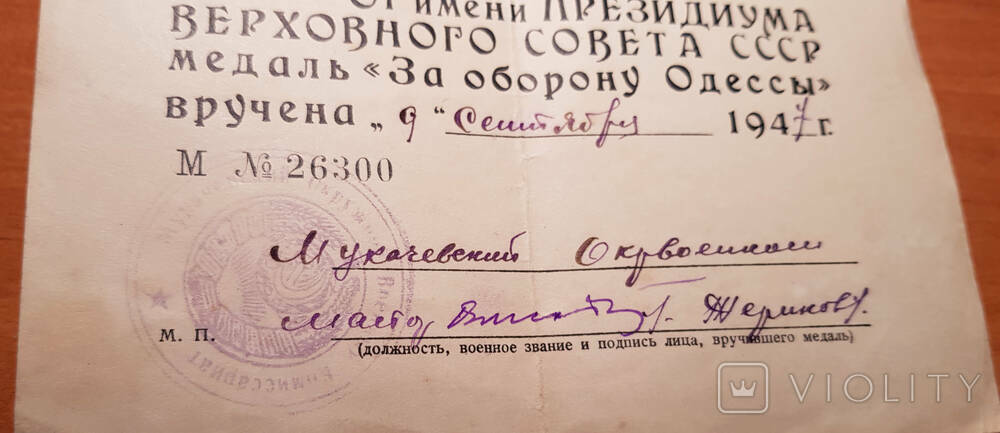 От имени ПРЕЗИДИУМА
ВЕРХОВНОГО СОВЕТА СССР
медаль «За оборону Одессы»
вручена „9“ Сентября 1947 г.
М № 26300
Мукачевский Окрвоенком
Майор
М. П.
(должность, военное звание и подпись лица, вручившего медаль)
Комиссариат
VIOLITY